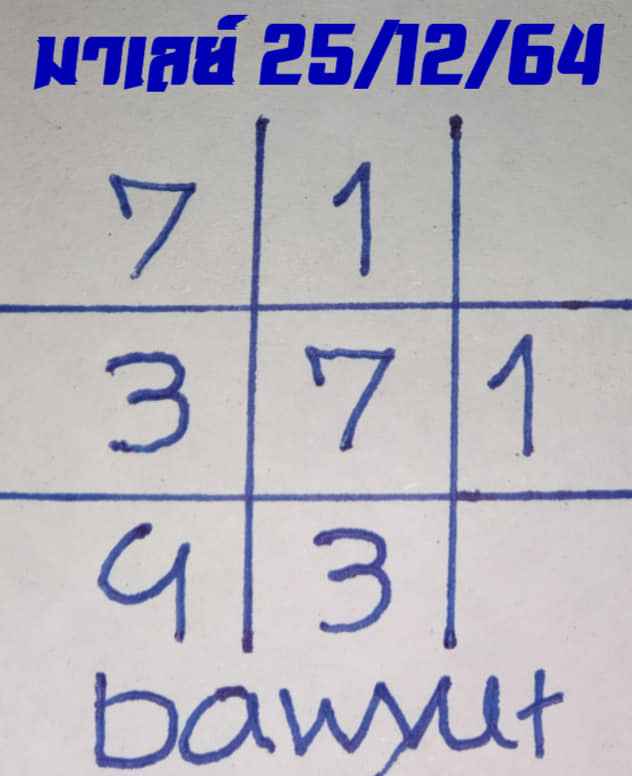 มาเลย์ 25/12/64
7 1
3 7 1
9 3
bawyut